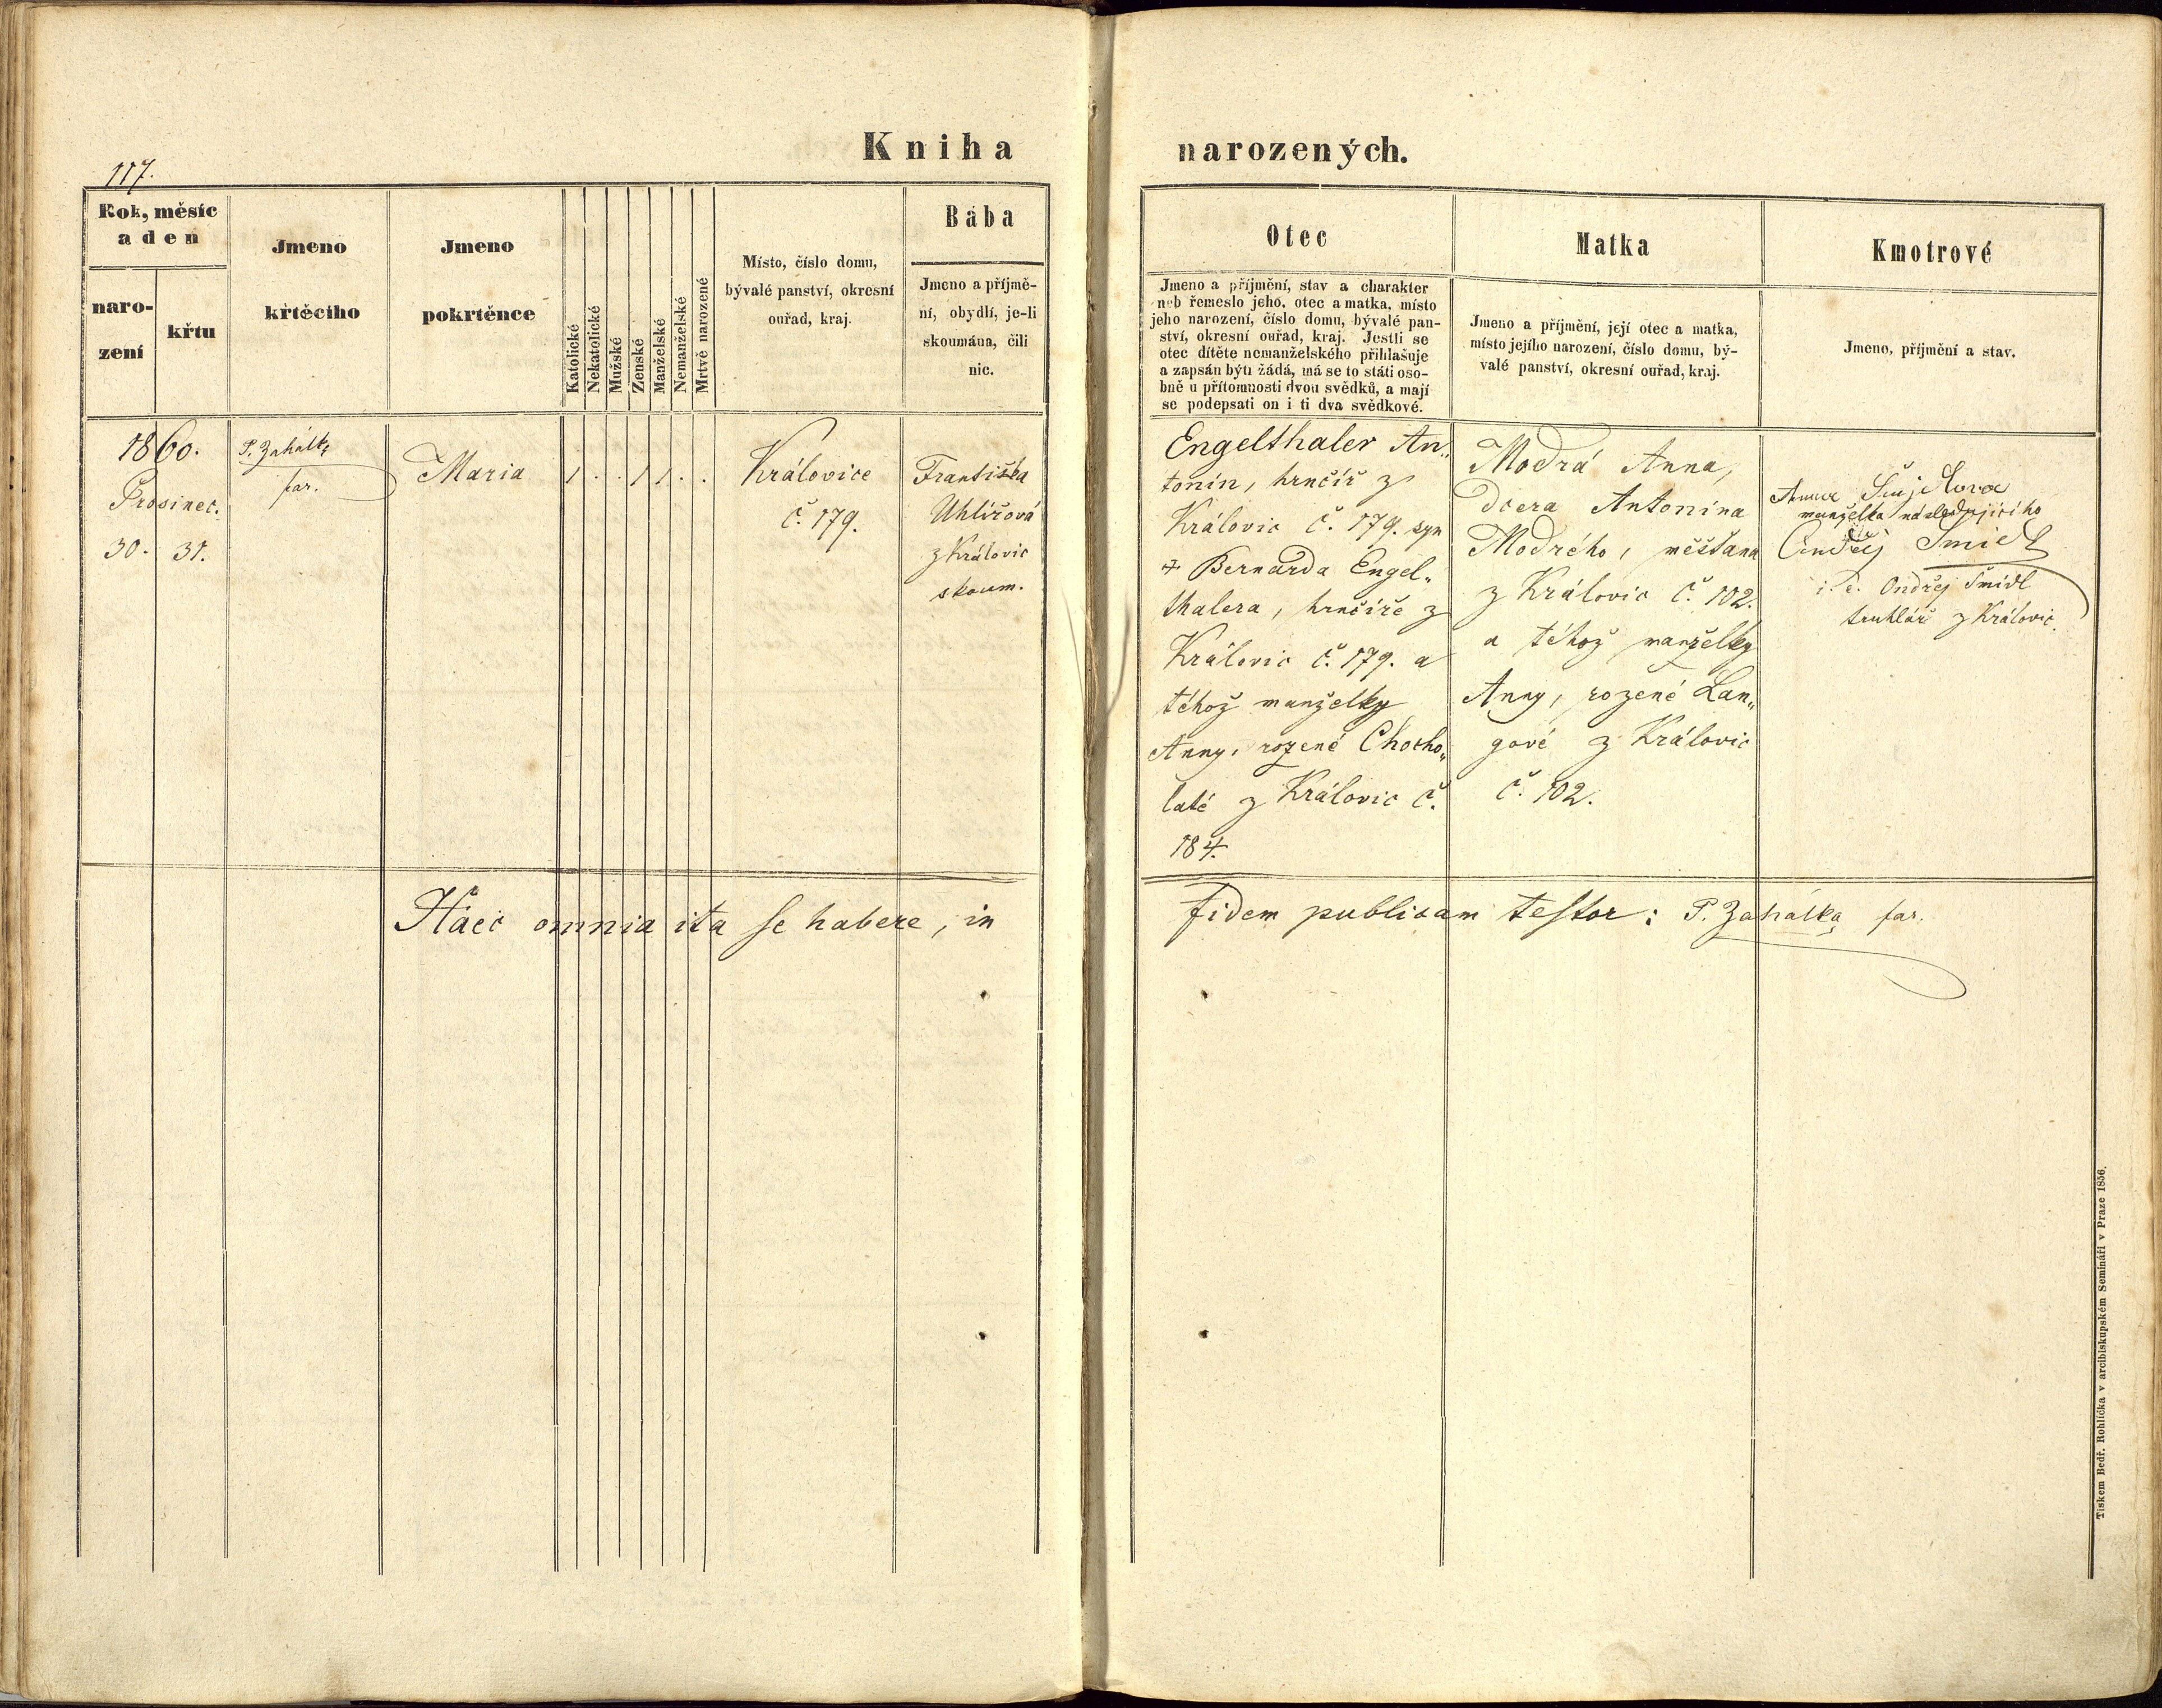 Kniha narozených.
117.
Rok, měsíc
a den
naro-
zení
křtu
Jmeno
křtěcího
Jmeno
pokrtěnce
Katolické
Nekatolické
Mužské
Zenské
Manželské
Nemanželské
Mrtvě narozené
Místo, číslo domu,
bývalé panství, okresní
ouřad, kraj.
Bába
Jmeno a příjmě-
ní, obydlí, je-li
skoumána, čili
nic.
Otec
Jmeno a příjmění, stav a charakter
neb řemeslo jeho, otec a matka, místo
jeho narození, číslo domu, bývalé pan-
ství, okresní ouřad, kraj. Jestli se
otec dítěte nemanželského přihlašuje
a zapsán býti žádá, má se to státi oso-
bně u přítomnosti dvou svědků, a mají
se podepsati on i ti dva svědkové.
Matka
Jmeno a příjmění, její otec a matka,
místo jejího narození, číslo domu, bý-
valé panství, okresní ouřad, kraj.
Kmotrové
Jmeno, příjmění a stav.
1860.
Prosinec.
30. 31.
P. Zahálka
far.
Maria
1 . . 1 1 . .
Královice
č. 179.
Františka
Uhlířová
z Královic
skoum.
Engelthaler An„
tonín, hrnčíř z
Královic č. 179. syn
+ Bernarda Engel„
thalera, hrnčíře z
Královic č. 179. a
téhož manželky
Anny, rozené Chocho„
laté z Královic č.
184.
Modrá Anna,
dcera Antonína
Modrého, měšťana
z Královic č. 102.
a téhož manželky
Anny, rozené Lan„
gové z Královic
č. 102.
Anna
manželka následujícího
Ondřej Šmidl
i. e. Ondřej Šmidl
truhlář z Královic.
Haec omnia ita se habere, in fidem publicam testor: P. Zahálka far.
Tiskem Bedř. Rohlíčka v arcibiskupském Semináři v Praze 1856.